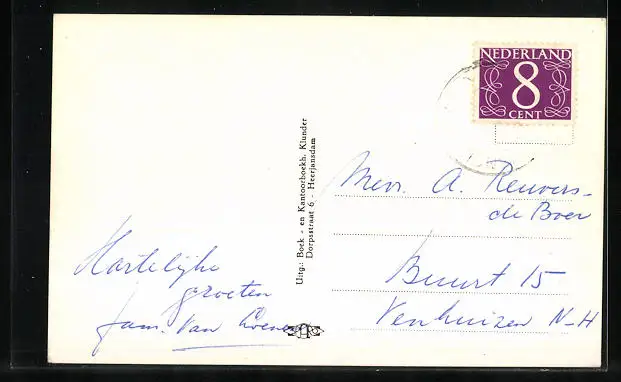 NEDERLAND
8
CENT
Uitg.: Boek - en Kantoorboekh. Klunder
Dorpsstraat 6 - Heerjansdam
Hartelijke
groeten
fam. van
Mevr. A. Reuvers-
de Boer
Buurt 15
Venhuizen N-H